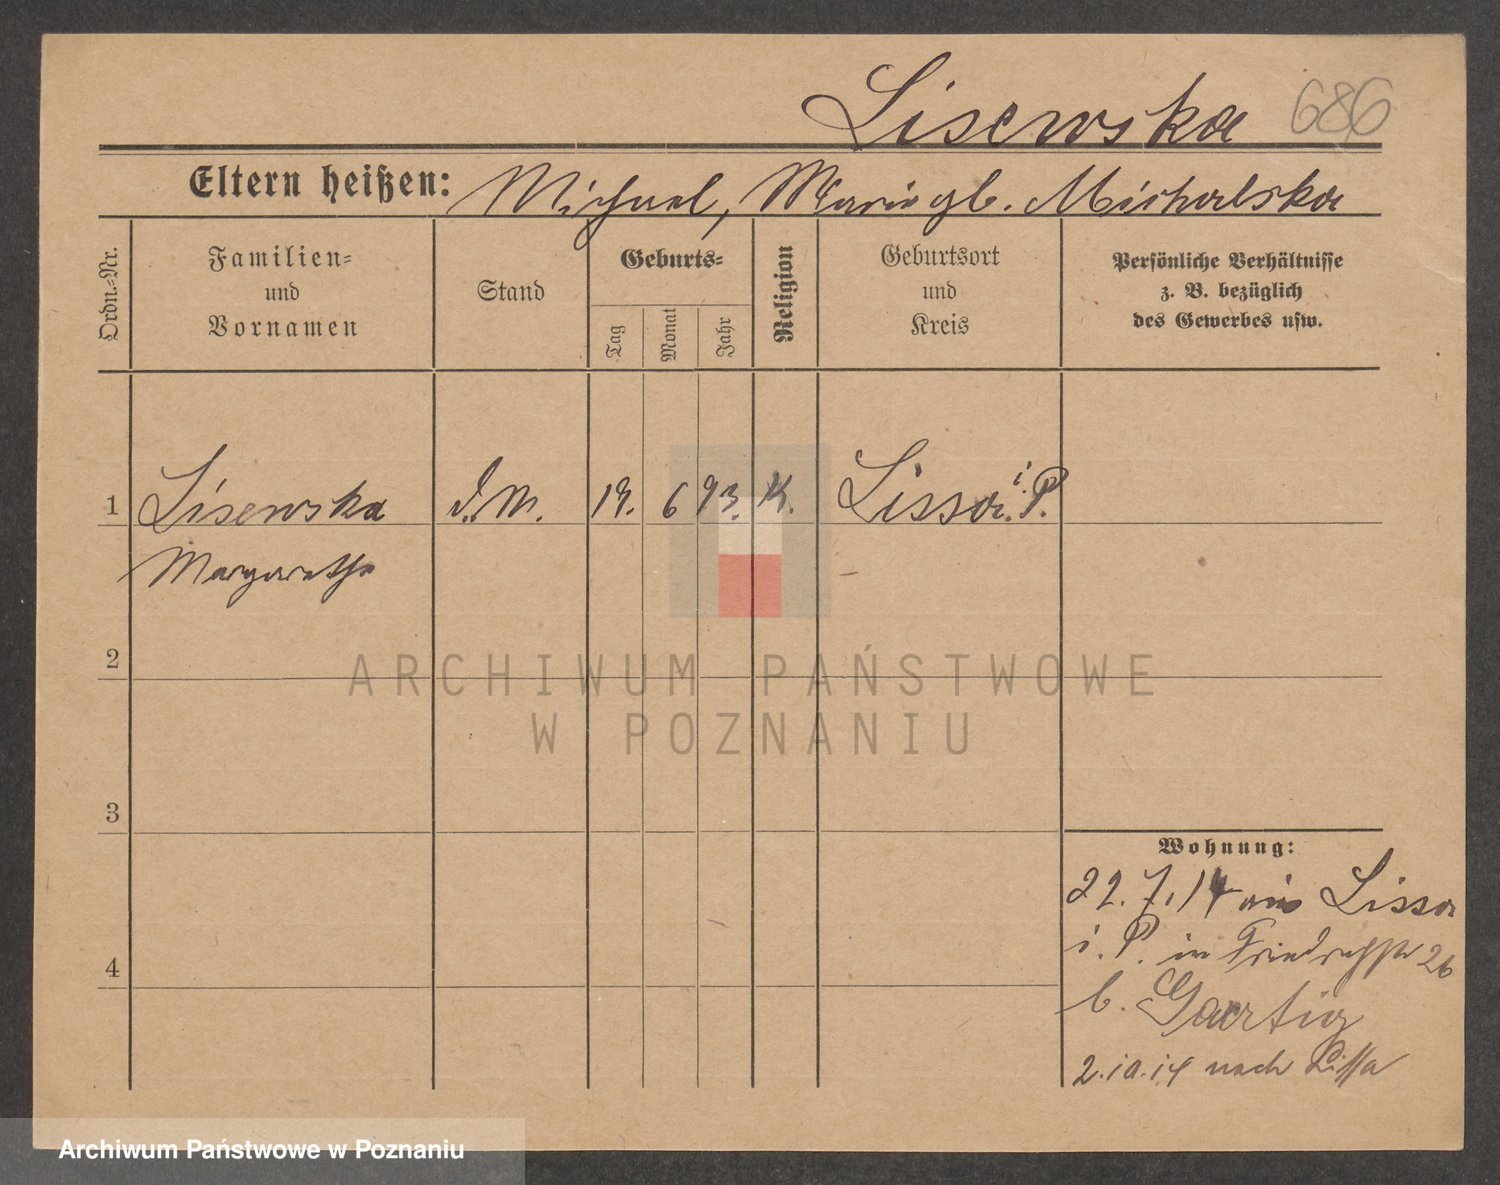 Lisewska 686
Eltern heißen: Michael, Marie gb. Michalska
Ordn.-Nr.
Familien-
und
Vornamen
Stand
Geburts-
Tag
Monat
Jahr
Religion
Geburtsort
und
Kreis
Persönliche Verhältnisse
z. B. bezüglich
des Gewerbes usw.
1 Lisewska d. M. 19. 6 93. K. Lissa i. P.
Margarethe
2
ARCHIWUM PAŃSTWOWE
W POZNANIU
3
Wohnung:
22. 7. 14 aus Lissa
i. P. in Friedrichstr 26
4
b. Gaertig
2.10.14 nach Lissa
Archiwum Państwowe w Poznaniu